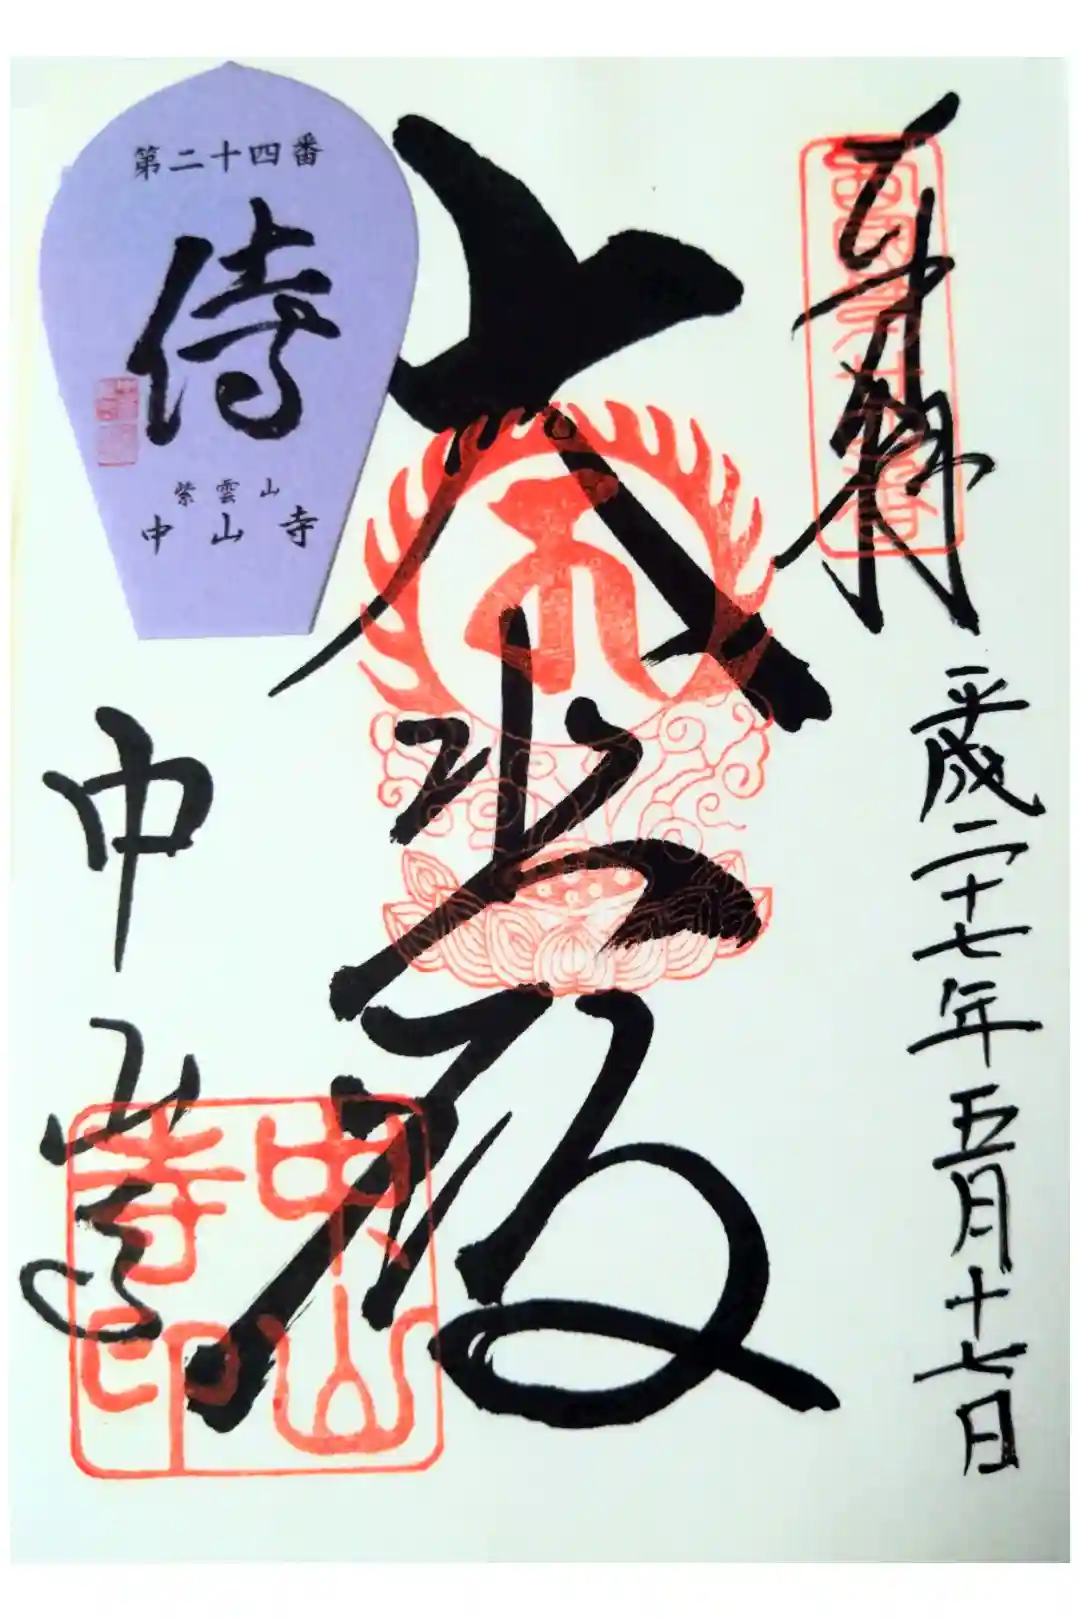 奉拝
平成二十七年五月十七日
大悲殿
中山寺
第二十四番
侍
紫雲山
中山寺
中山寺印